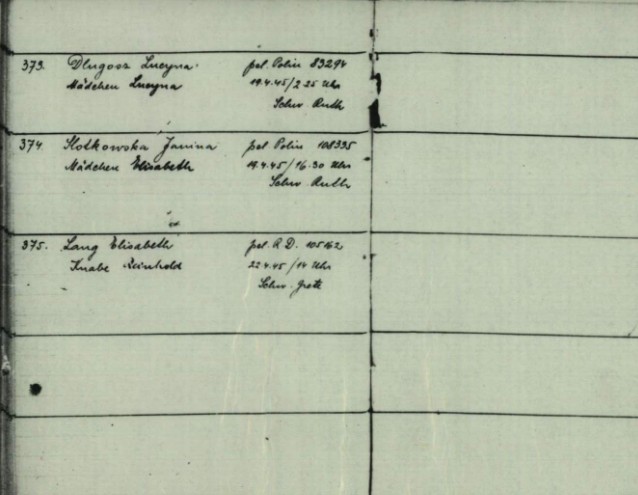 373. Dlugosz Lucyna pol. Polin 83294
Mädchen Lucyna 19.4.45/2 25 Uhr
Schw Ruth
374 Slotkowska Janina pol. Polin 108335
Mädchen Elisabeth 19.4.45/16.30 Uhr
Schw. Ruth
375. Lang Elisabeth pol. R D. 105162
Knabe Reinhold 22.4.45/14 Uhr
Schw. Grete